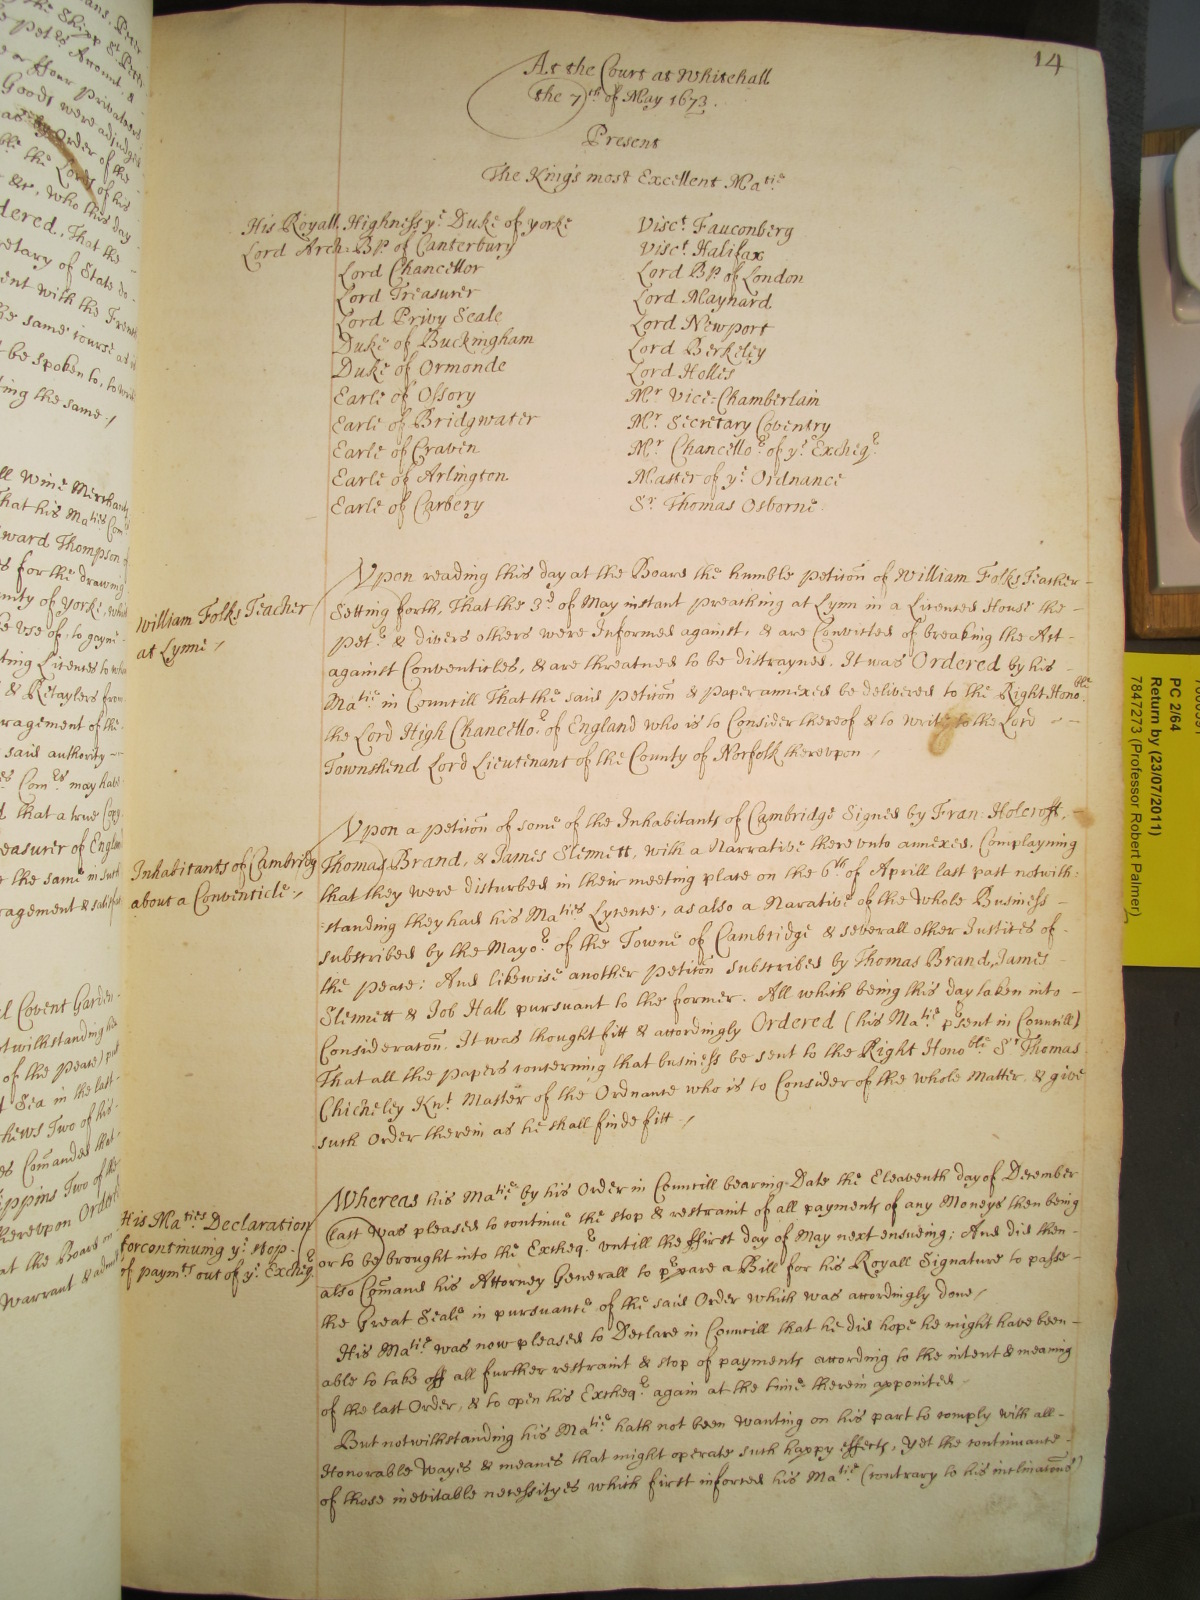 14
At the Court at Whitehall
the 7th of May 1673.
Present
The Kings most Excellent Matie
His Royall Highness ye Duke of yorke
Lord Arch-Bp. of Canterbury
Lord Chancellor
Lord Treasurer
Lord Privy Seale
Duke of Buckingham
Duke of Ormonde
Earle of Ossory
Earle of Bridgwater
Earle of Craven
Earle of Arlington
Earle of Carbery
Visct. Fauconberg
Visct. Halifax
Lord Bp. of London
Lord Maynard
Lord Newport
Lord Berkeley
Lord Holles
Mr Vice-Chamberlain
Mr. Secretary Coventry
Mr Chancellor of ye Excheqr
Master of ye Ordnance
Sr Thomas Osborne
William Folks Teacher
at Lynne /
Upon reading this day at the Board the humble petition of William Folks Teacher -
Setting forth, That the 3d of May instant preaching at Lynn in a Licensed House the -
petr. & divers others were Informed against, & are Convicted of breaking the Act -
against Conventicles, & are threatned to be distrayned. It was Ordered by his -
Matie in Councill That the said petition & paper annexed be delivered to the Right Honoble
the Lord High Chancellor of England who is to Consider thereof & to write to the Lord - -
Townshend Lord Lieutenant of the County of Norfolk thereupon /
Inhabitants of Cambridg
about a Conventicle /
Upon a petition of some of the Inhabitants of Cambridge Signed by Fran: Holcroft,
Thomas Brand, & James Slennett, with a Narrative thereunto annexed, Complayning
that they were disturbed in their meeting place on the 6th of Aprill last past notwith:
:standing they had his Maties Lycence, as also a Narative of the whole Business -
subscribed by the Mayor of the Towne of Cambridge & severall other Justices of -
the peace: And likewise another petition subscribed by Thomas Brand, James -
Slennett & Job Hall pursuant to the former. All which being this day taken into -
Consideration. It was thought fitt & accordingly Ordered (his Matie present in Councill)
That all the papers concerning that business be sent to the Right Honoble Sr Thomas
Chicheley Knt. Master of the Ordnance who is to Consider of the whole matter, & give
such Order therein as he shall finde fitt /
His Maties Declaration
for continuing ye stop
of paymts out of ye Excheqr
Whereas his Matie by his Order in Councill bearing Date the Eleaventh day of December
last was pleased to continue the stop & restraint of all payments of any Moneys then being
or to be brought into the Excheqr untill the ffirst day of May next ensueing; And did then -
also Comand his Attorney Generall to prpare a Bill for his Royall Signature to passe -
the Great Seale in pursuance of the said Order which was accordingly done /
His Matie was now pleased to Declare in Councill that he did hope he might have been -
able to take off all further restraint & stop of payments according to the intent & meaning
of the last Order, & to open his Excheqr again at the time therein appointed -
But notwithstanding his Matie hath not been wanting on his part to comply with all -
Honorable wayes & meanes that might operate such happy effects, yet the continuance -
of those inevitable necessityes which first inforced his Matie (contrary to his inclinations)
PC 2/64
Return by (23/07/2011)
7847273 (Professor Robert Palmer)